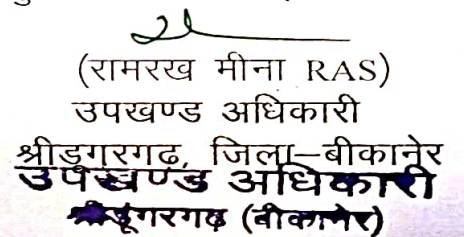 (रामरख मीना RAS)
उपखण्ड अधिकारी
श्रीडुगरगढ, जिला–बीकानेर
उपखण्ड अधिकारी
श्रीडूंगरगढ (बीकानेर)